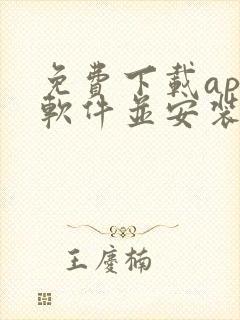 免費下載ap
軟件並安裝
王慶楠